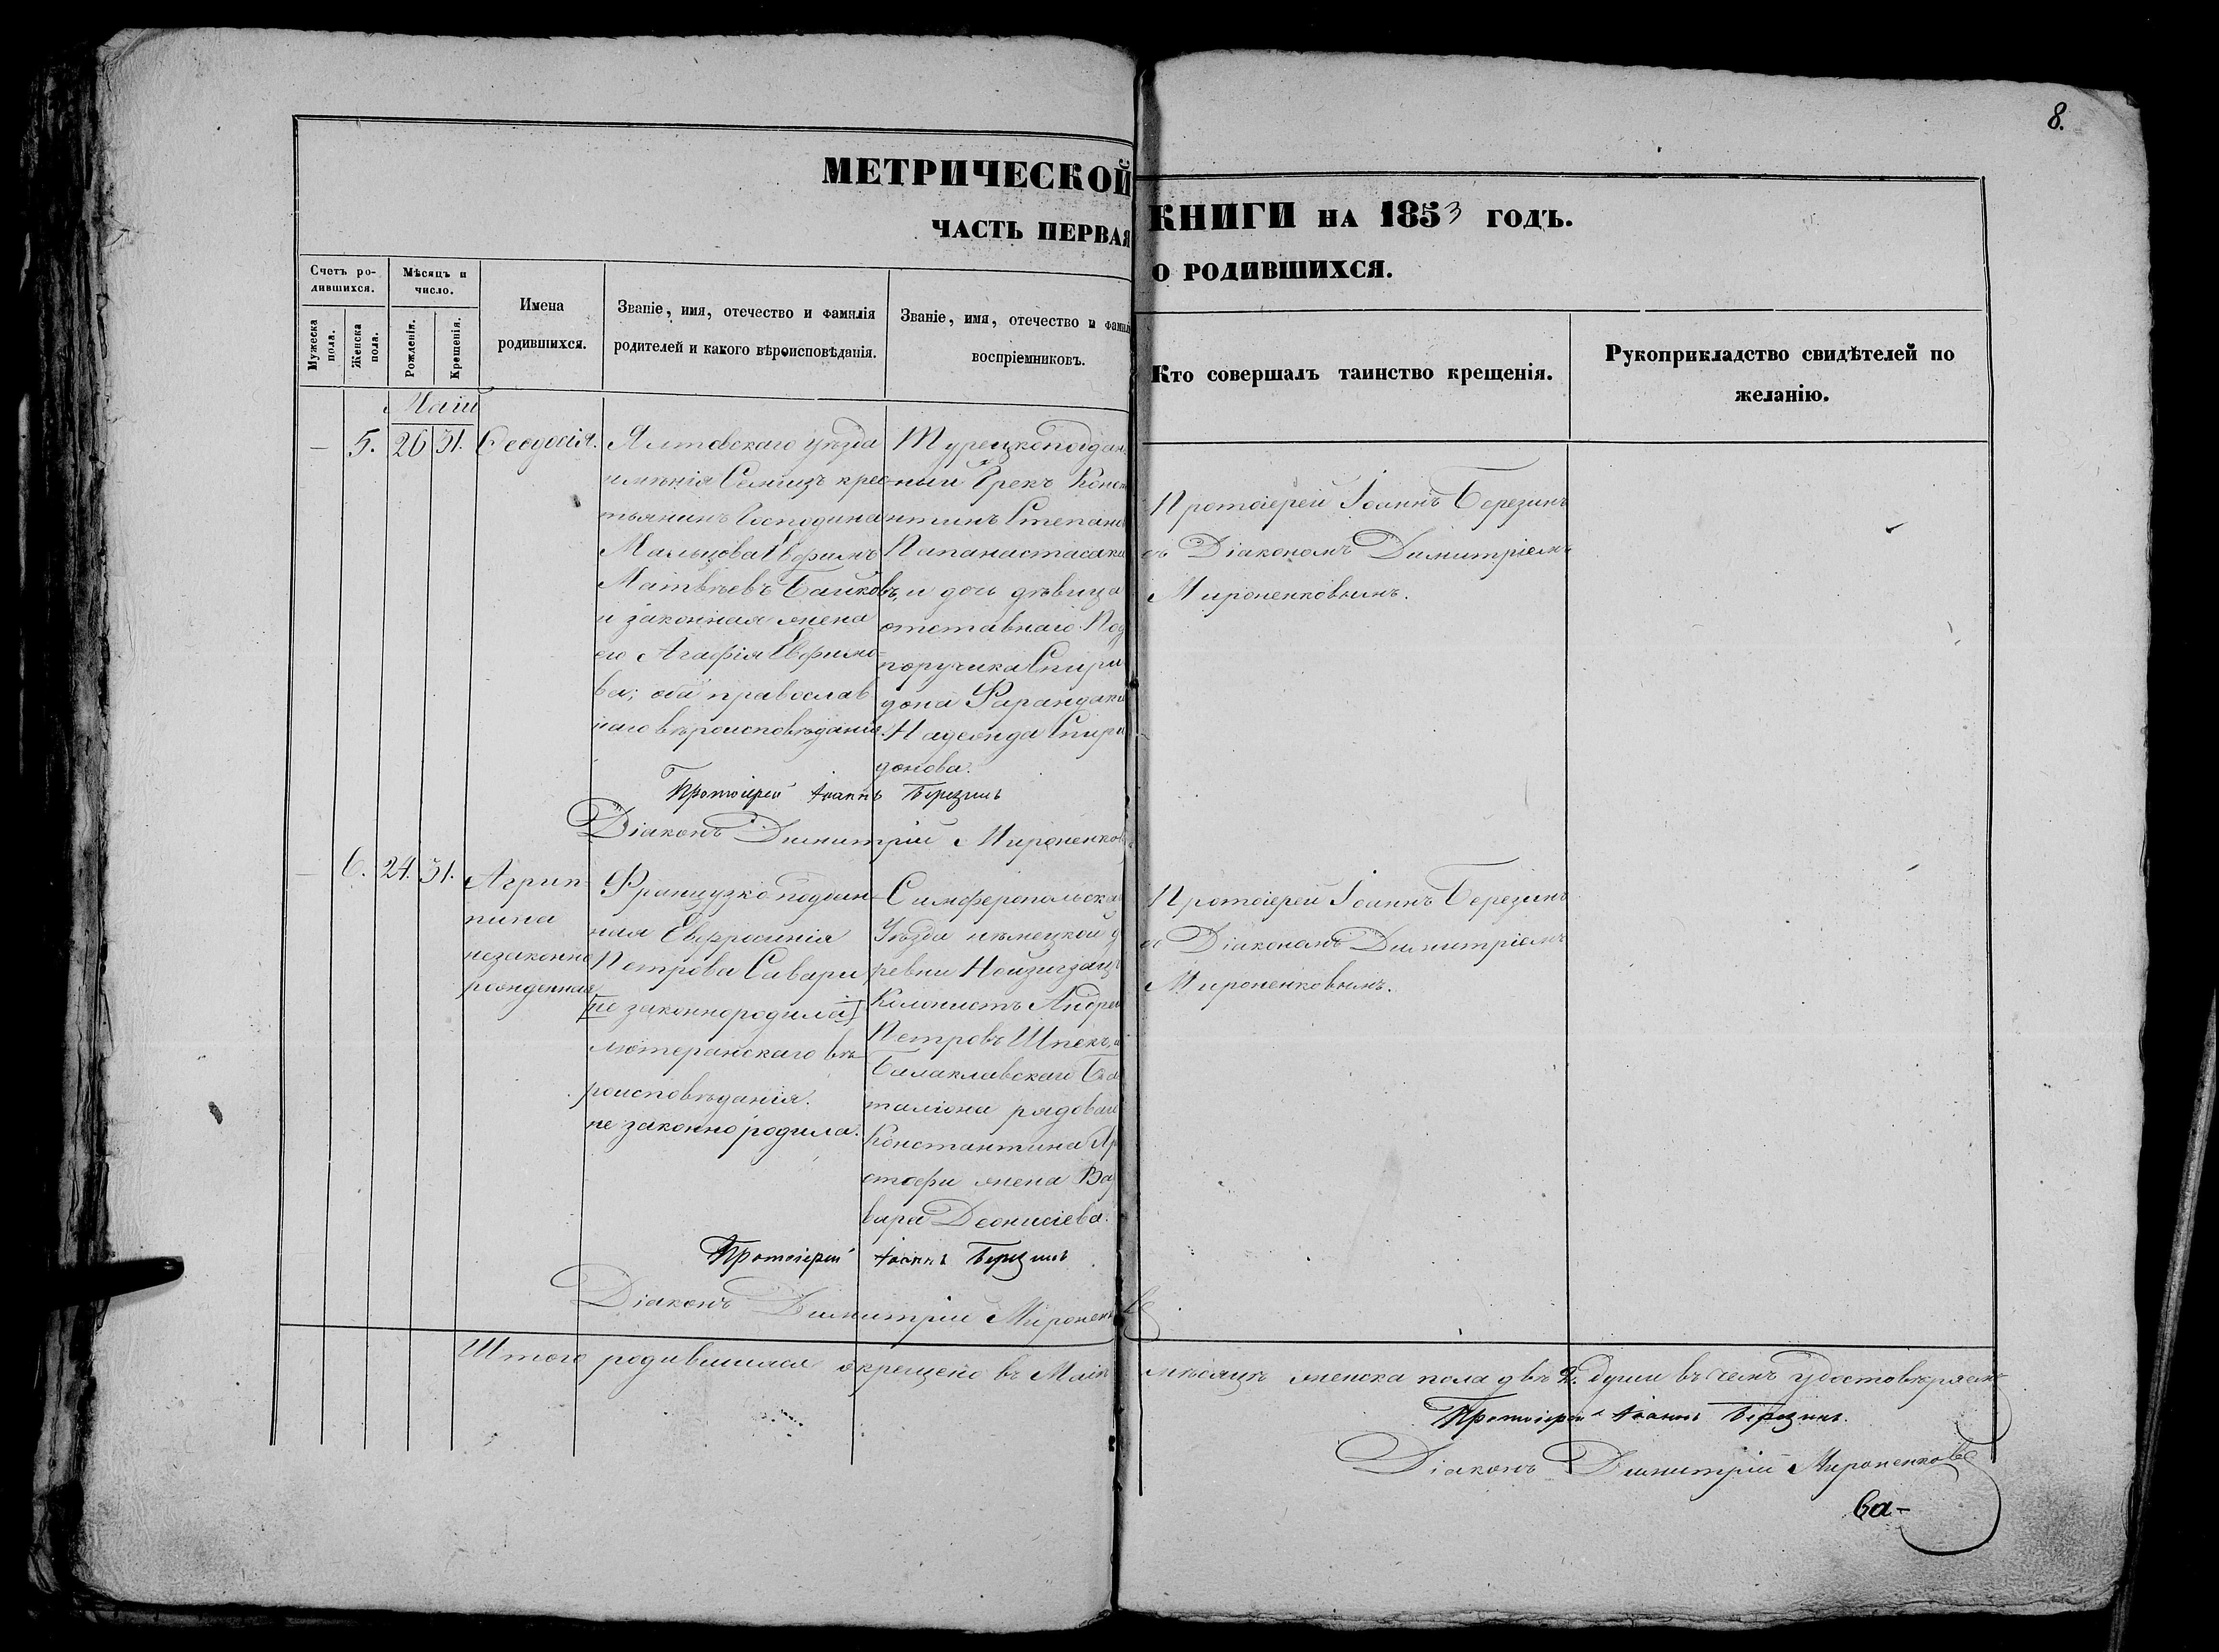 8.
МЕТРИЧЕСКОЙ КНИГИ НА 1853 ГОДЪ.
ЧАСТЬ ПЕРВАЯ О РОДИВШИХСЯ.
Счетъ ро-
дившихся.
Мужеска пола.
Женска пола.
Мѣсяцъ и
число.
Рожденія.
Крещенія.
Имена
родившихся.
Званіе, имя, отечество и фамилія
родителей и какого вѣроисповѣданія.
Званіе, имя, отечество и фамил
воспріемниковъ.
Кто совершалъ таинство крещенія.
Рукоприкладство свидѣтелей по
желанію.
Маій
— 5. 26 31. Ѳеодосія.
Ялтовскаго уѣзда
имѣнія Семизъ крес-
тьянинъ Господина
Мальцова Евфимъ
Матвѣевъ Байковъ,
и законная жена
его Агафія Евфимо-
ва; оба православ
наго вѣроисповѣданія.
Турецкоподдан-
ный Грекъ Конс
нтинъ Степано
Папанастасаки
и дочь дѣвица
отставнаго Под
поручика Спири
дона Фарандаки
Надежда Спири
донова.
Протоіерей Іоаннъ Березинъ
съ Діакономъ Димитріемъ
Мироненковымъ.
Протоіерей Іоаннъ Березинъ
Діаконъ Димитрій Мироненковъ
— 6. 24. 31. Агрип-
пина
незаконно
рожденная
Французко подан-
ная Евфросинія
Петрова Савари
[не законнородила]
лютеранскаго вѣ-
роисповѣданія.
не законно родила.
Симферопольска
Уѣзда нѣмецкой д
ревни Нейзигзацъ
Колонистъ Андрей
Петровъ Шпекъ, и
Балаклавскаго Ба
таліона рядоваго
Константина
жена Вар
вара Деонисіева.
Протоіерей Іоаннъ Березинъ
съ Діакономъ Димитріемъ
Мироненковымъ.
Протоіерей Іоаннъ Березинъ
Діаконъ Димитрій Мироненковъ
Итого родившихся окрещено въ Маіѣ мѣсяцѣ женска пола двѣ 2. души въ чемъ удостовѣряемъ
Протоіерей Іоаннъ Березинъ.
Діаконъ Димитрій Мироненковъ
ва-